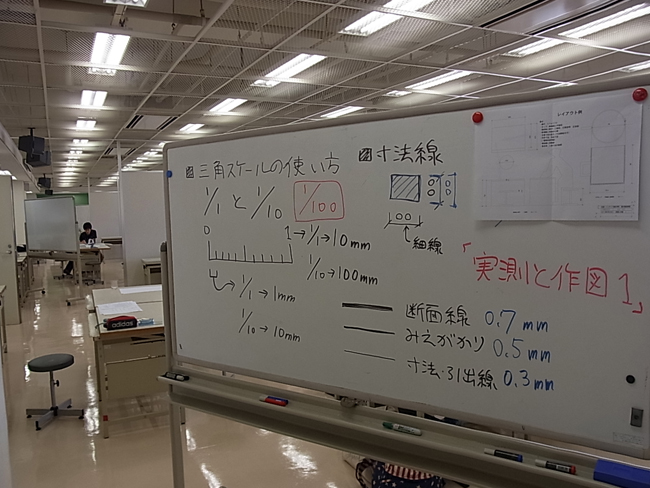 三角スケールの使い方
1/1 と 1/10 1/100
0 1→1/1→10mm
1/10→100mm
→1/1→1mm
1/10→10mm
寸法線
細線
レイアウト例
「実測と作図1」
断面線 0.7mm
みえがかり 0.5mm
寸法・引出線 0.3mm
adidas